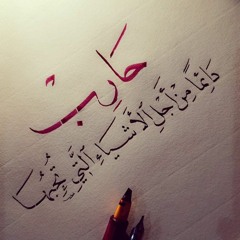 حَارِبْ
دَائِمًا مِنْ أَجْلِ الْأَشْيَاءِ الَّتِي تُحِبُّهَا